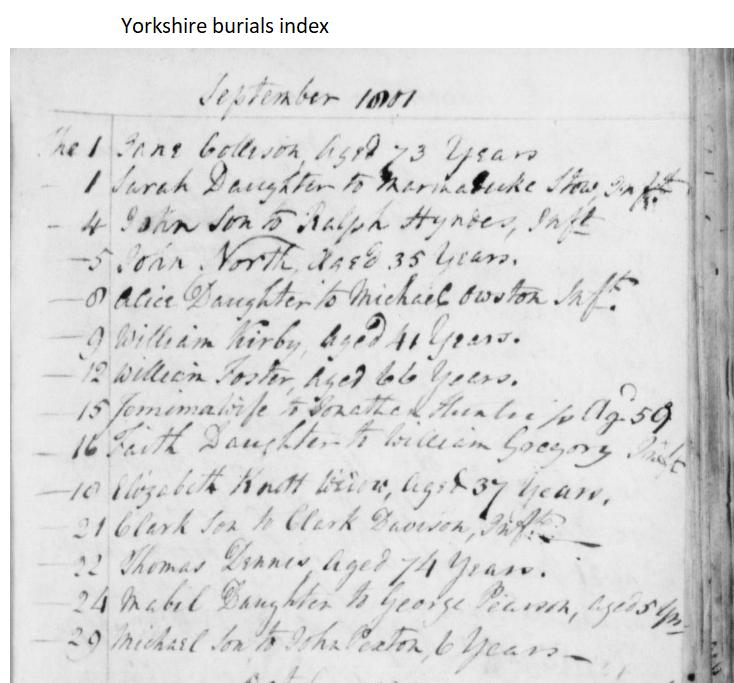 Yorkshire burials index
September 1801
The 1 Jane Collison, Aged 73 Years
- 1 Sarah Daughter to Marmaduke Stow, Inft.
- 4 John Son to Ralph Hyndes, Inft
- 5 John North, Aged 35 Years.
- 8 Alice Daughter to Michael Owston Inft.
- 9 William Kirby, Aged 41 Years.
- 12 William Foster, Aged 66 Years.
- 15 Jemima wife to Jonathan Agd 59
- 16 Faith Daughter to William Gregory Inft
- 18 Elizabeth Knott Widow, Aged 37 Years.
- 21 Clark Son to Clark Davison, Inft.
- 22 Thomas Dennis, Aged 74 Years.
- 24 Mabel Daughter to George Pearson, aged 5 Yrs
- 29 Michael Son to John Paxton, 6 Years